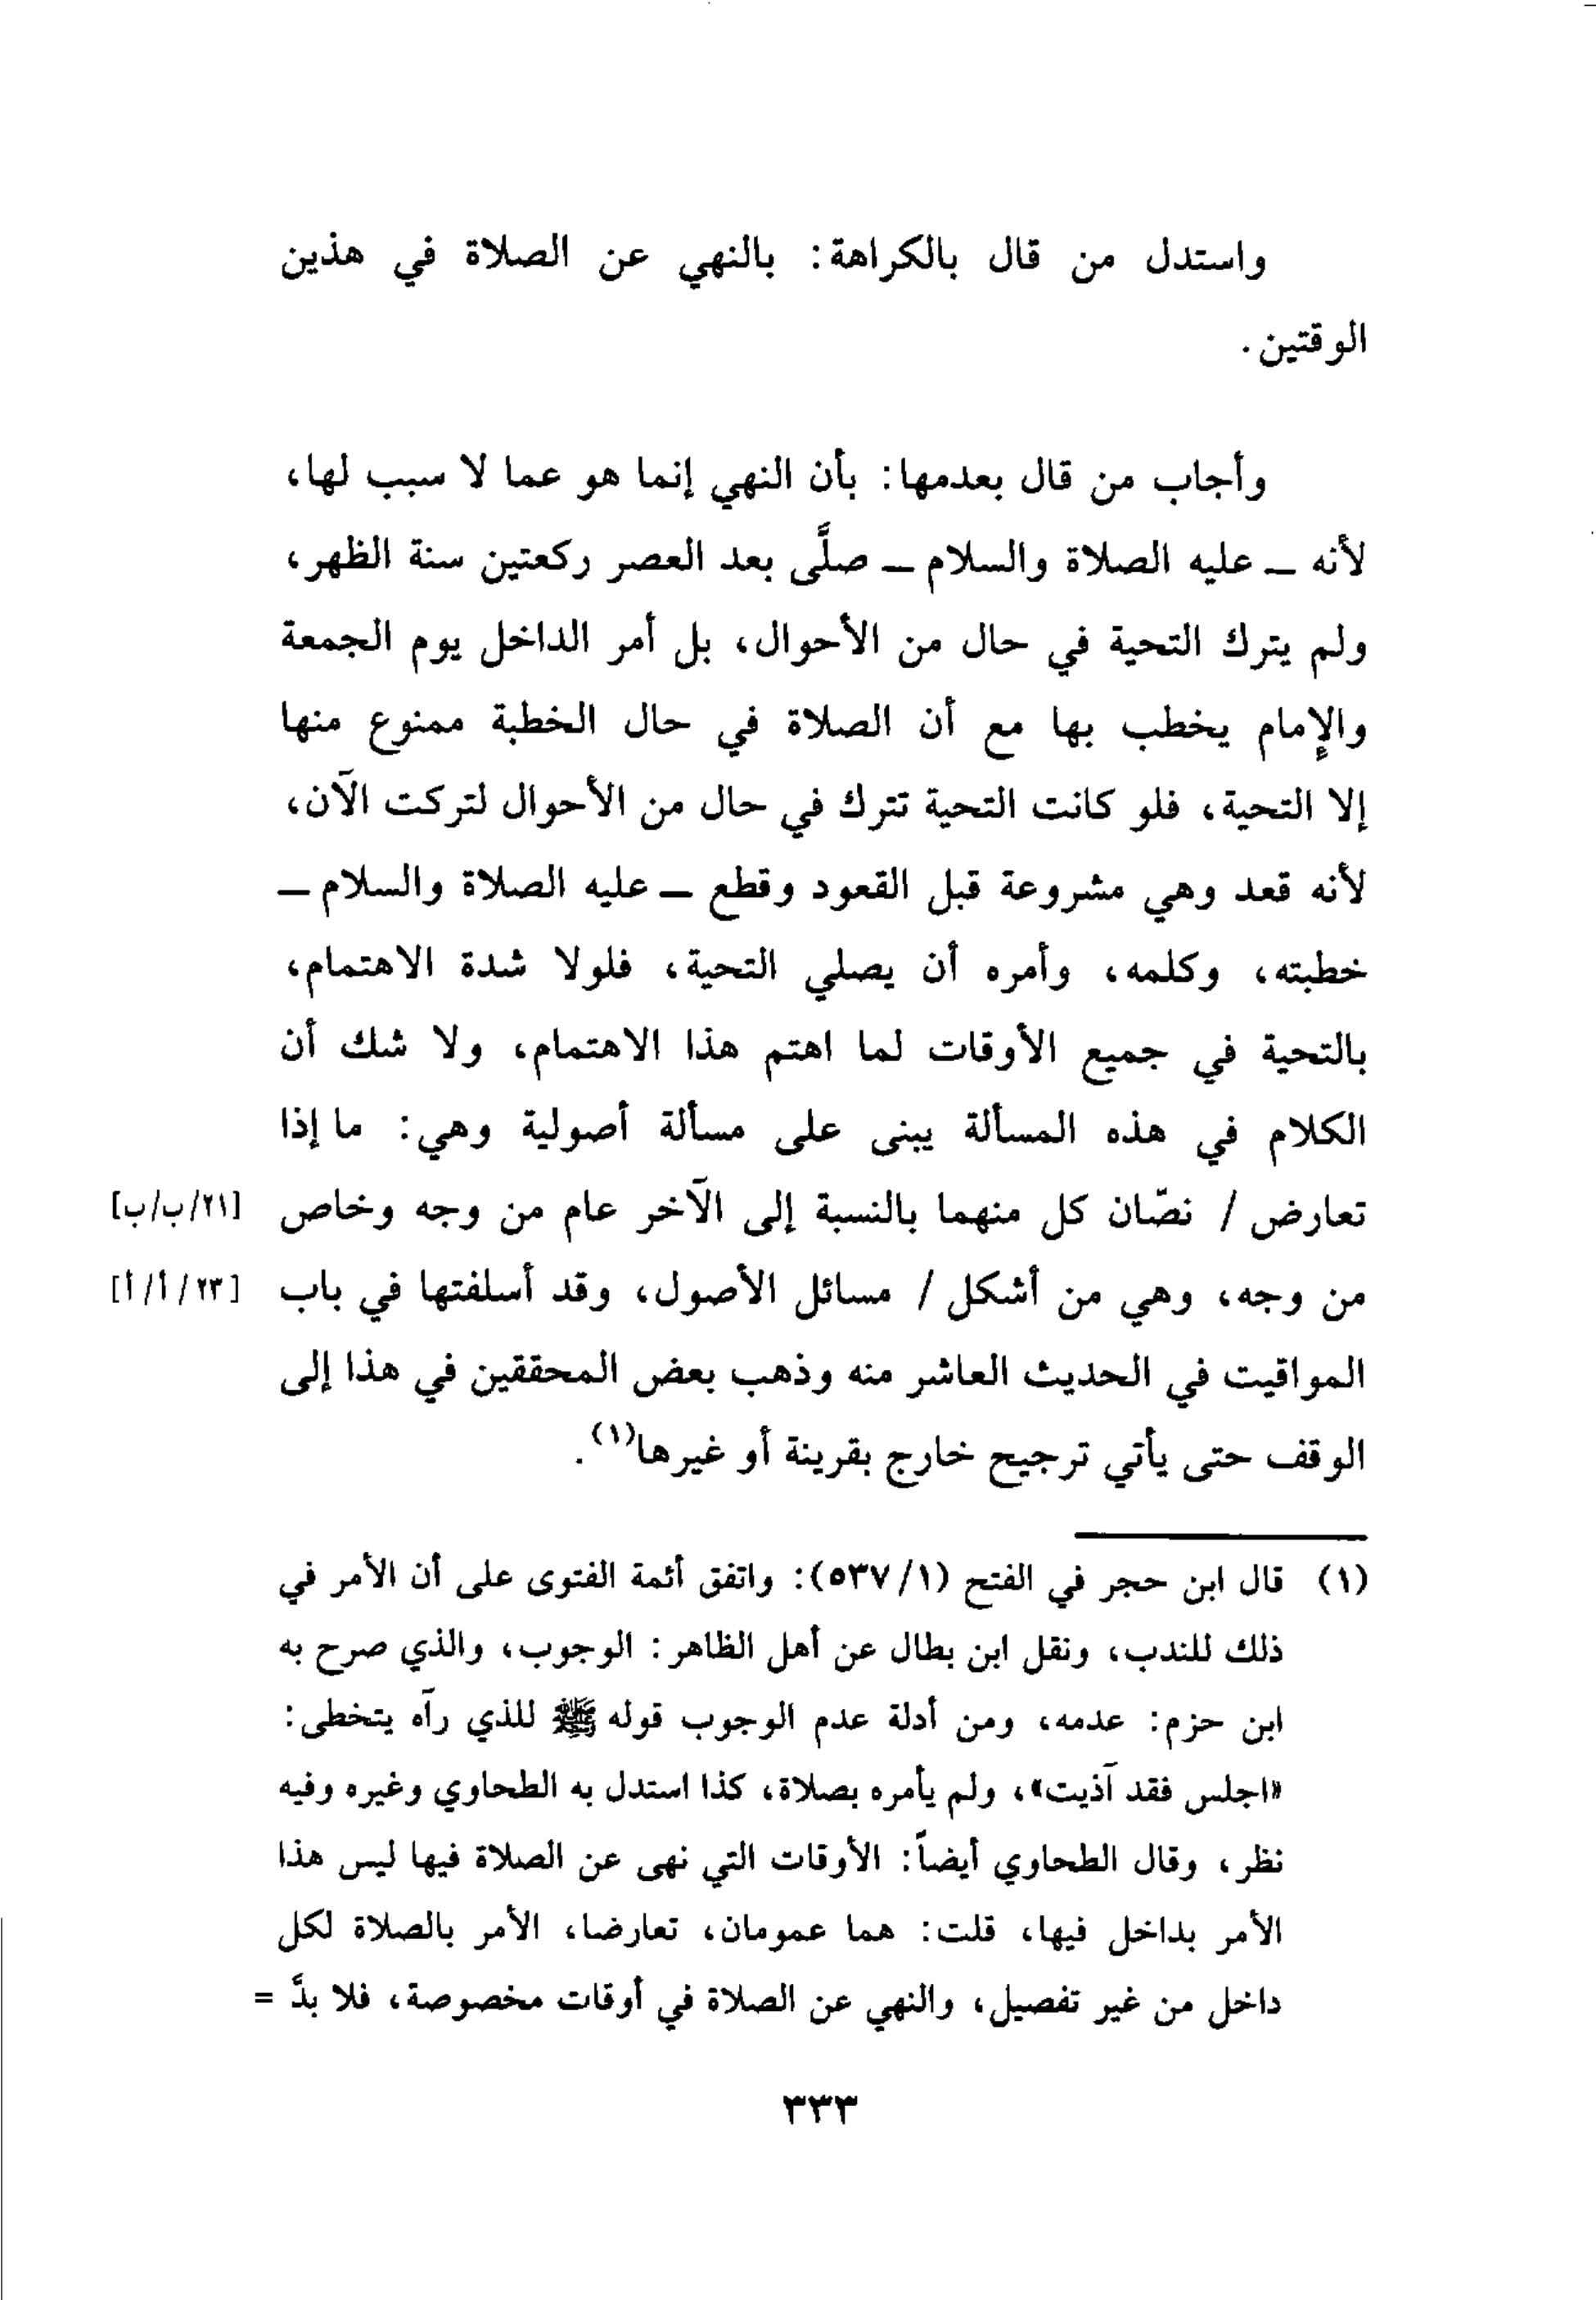 واستدل من قال بالكراهة: بالنهي عن الصلاة في هذين
الوقتين.
وأجاب من قال بعدمها: بأن النهي إنما هو عما لا سبب لها،
لأنه ــ عليه الصلاة والسلام ــ صلَّى بعد العصر ركعتين سنة الظهر،
ولم يترك التحية في حال من الأحوال، بل أمر الداخل يوم الجمعة
والإمام يخطب بها مع أن الصلاة في حال الخطبة ممنوع منها
إلا التحية، فلو كانت التحية تترك في حال من الأحوال لتركت الآن،
لأنه قعد وهي مشروعة قبل القعود وقطع ــ عليه الصلاة والسلام ــ
خطبته، وكلمه، وأمره أن يصلي التحية، فلولا شدة الاهتمام،
بالتحية في جميع الأوقات لما اهتم هذا الاهتمام، ولا شك أن
الكلام في هذه المسألة يبنى على مسألة أصولية وهي: ما إذا
تعارض / نصّان كل منهما بالنسبة إلى الآخر عام من وجه وخاص [٢١/ب/ب]
من وجه، وهي من أشكل / مسائل الأصول، وقد أسلفتها في باب [٢٣/أ/أ]
المواقيت في الحديث العاشر منه وذهب بعض المحققين في هذا إلى
الوقف حتى يأتي ترجيح خارج بقرينة أو غيرها(١).
(١) قال ابن حجر في الفتح (٥٣٧/١): واتفق أئمة الفتوى على أن الأمر في
ذلك للندب، ونقل ابن بطال عن أهل الظاهر: الوجوب، والذي صرح به
ابن حزم: عدمه، ومن أدلة عدم الوجوب قوله ﷺ للذي رآه يتخطى:
«اجلس فقد آذيت»، ولم يأمره بصلاة، كذا استدل به الطحاوي وغيره وفيه
نظر، وقال الطحاوي أيضاً: الأوقات التي نهى عن الصلاة فيها ليس هذا
الأمر بداخل فيها، قلت: هما عمومان، تعارضا، الأمر بالصلاة لكل
داخل من غير تفصيل، والنهي عن الصلاة في أوقات مخصوصة، فلا بدَّ =
٣٣٣